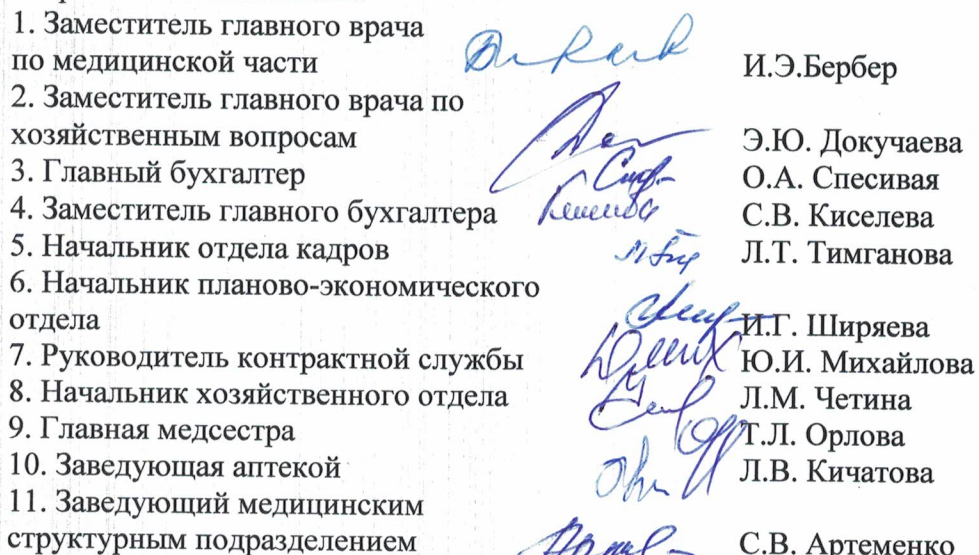 1. Заместитель главного врача
по медицинской части И.Э.Бербер
2. Заместитель главного врача по
хозяйственным вопросам Э.Ю. Докучаева
3. Главный бухгалтер О.А. Спесивая
4. Заместитель главного бухгалтера С.В. Киселева
5. Начальник отдела кадров Л.Т. Тимганова
6. Начальник планово-экономического
отдела И.Г. Ширяева
7. Руководитель контрактной службы Ю.И. Михайлова
8. Начальник хозяйственного отдела Л.М. Четина
9. Главная медсестра Т.Л. Орлова
10. Заведующая аптекой Л.В. Кичатова
11. Заведующий медицинским
структурным подразделением С.В. Артеменко